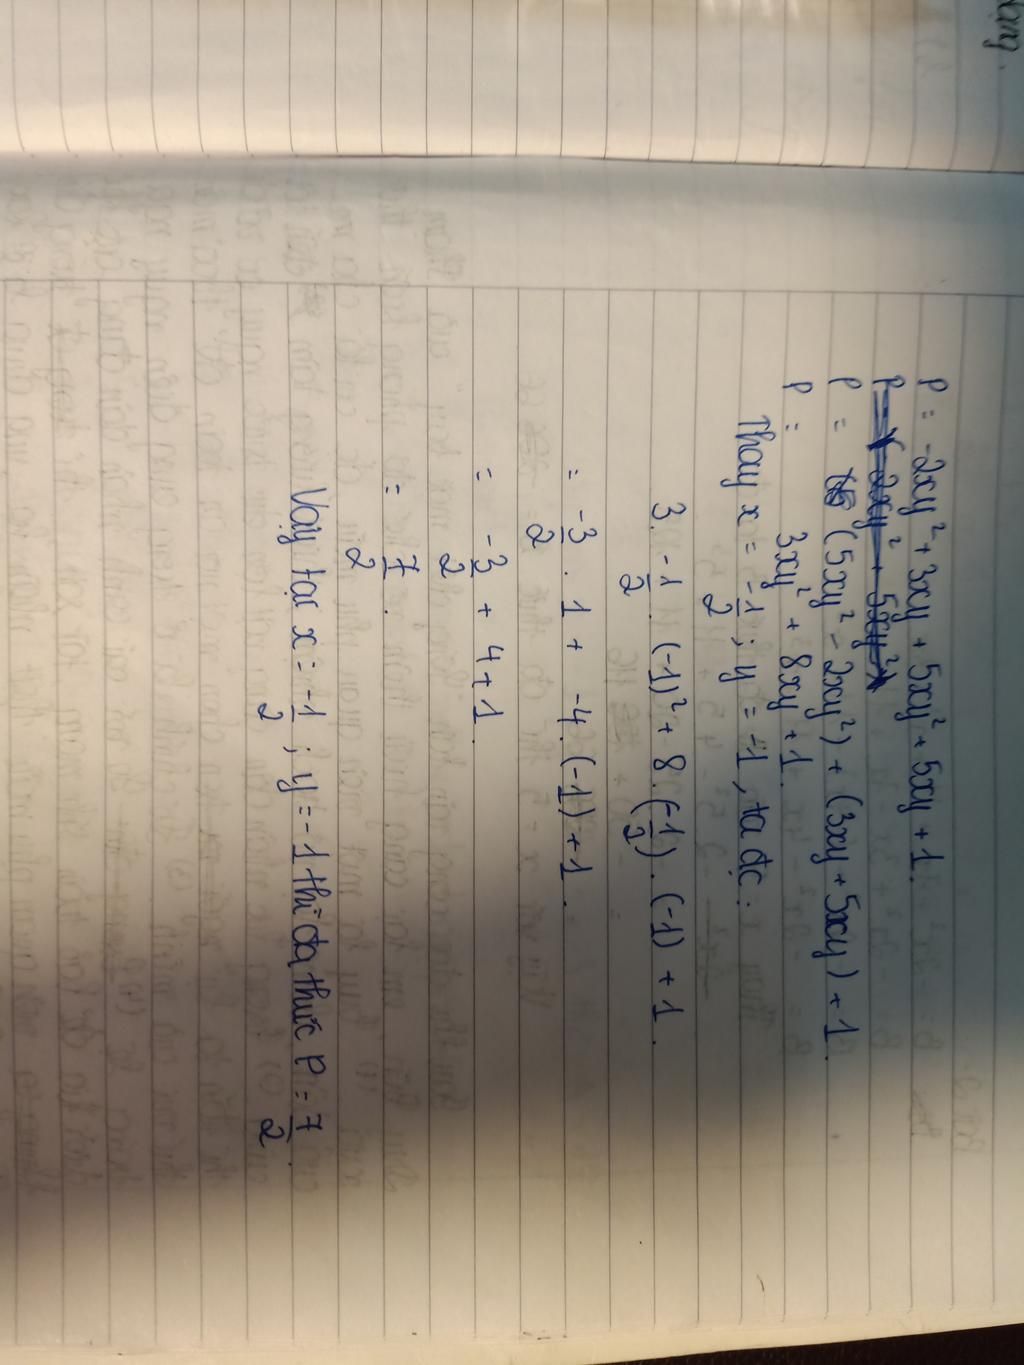 P = -2xy² + 3xy + 5xy² + 5xy + 1.
P = (5xy² - 2xy²) + (3xy + 5xy) + 1.
P = 3xy² + 8xy + 1.
Thay x = -1/2 ; y = -1, ta đc:
3. -1/2 . (-1)² + 8.(-1/2).(-1) + 1.
= -3/2 . 1 + -4.(-1) + 1.
= -3/2 + 4 + 1.
= 7/2.
Vậy tại x = -1/2 ; y = -1 thì đa thức P = 7/2.